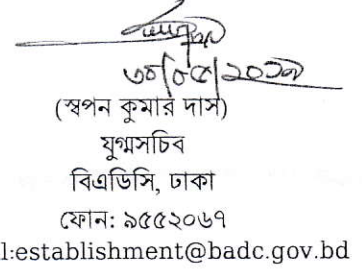 ৩০/০৫/২০১৯
(স্বপন কুমার দাস)
যুগ্মসচিব
বিএডিসি, ঢাকা
ফোন: ৯৫৫২০৬৭
l:establishment@badc.gov.bd